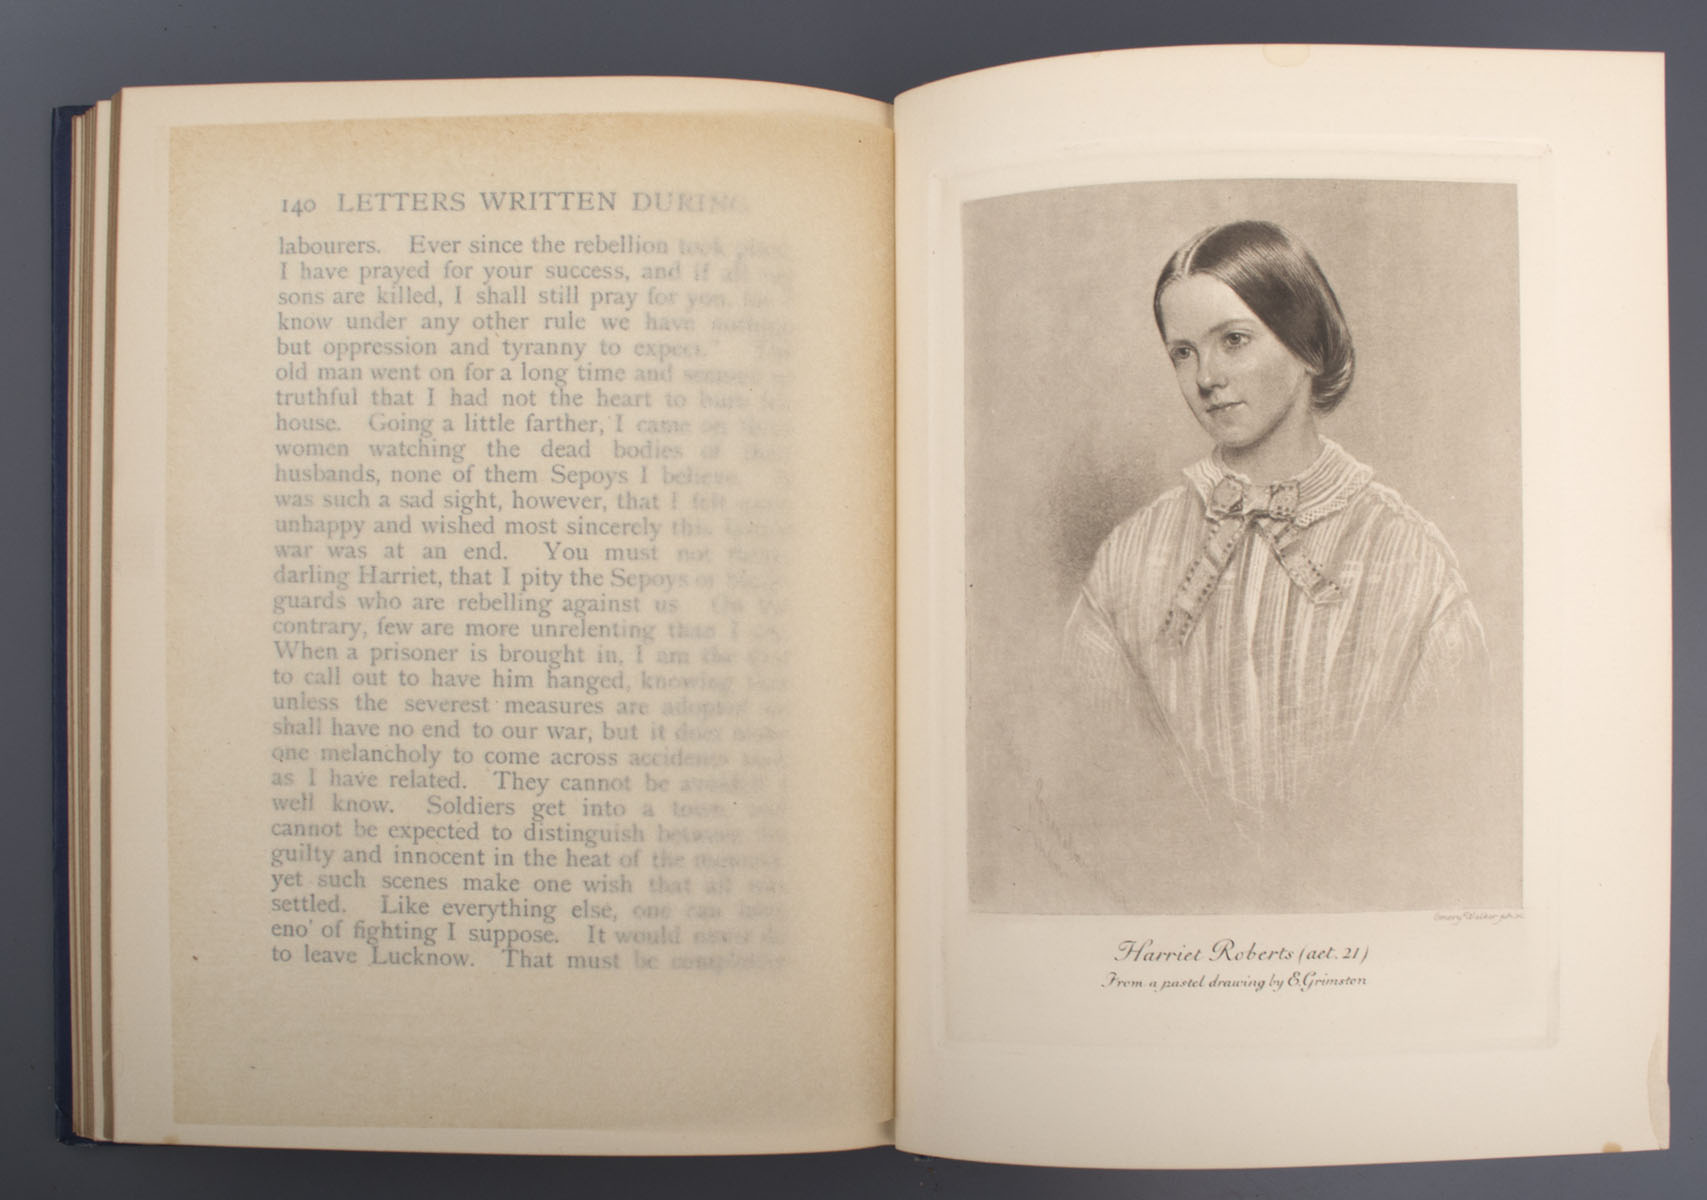 140 LETTERS WRITTEN DURING
labourers. Ever since the rebellion took place
I have prayed for your success, and if all my
sons are killed, I shall still pray for you,
know under any other rule we have nothing
but oppression and tyranny to expect.' The
old man went on for a long time and seemed so
truthful that I had not the heart to burn his
house. Going a little farther, I came on
women watching the dead bodies of their
husbands, none of them Sepoys I believe. It
was such a sad sight, however, that I felt quite
unhappy and wished most sincerely this
war was at an end. You must not
darling Harriet, that I pity the Sepoys or
guards who are rebelling against us. On the
contrary, few are more unrelenting than I am.
When a prisoner is brought in, I am the first
to call out to have him hanged, knowing that
unless the severest measures are adopted we
shall have no end to our war, but it does make
one melancholy to come across accidents such
as I have related. They cannot be avoided I
well know. Soldiers get into a town and
cannot be expected to distinguish between the
guilty and innocent in the heat of the moment,
yet such scenes make one wish that all was
settled. Like everything else, one can have
eno' of fighting I suppose. It would never do
to leave Lucknow. That must be completely
Emery Walker ph.sc.
Harriet Roberts (aet. 21)
From a pastel drawing by E. Grimston